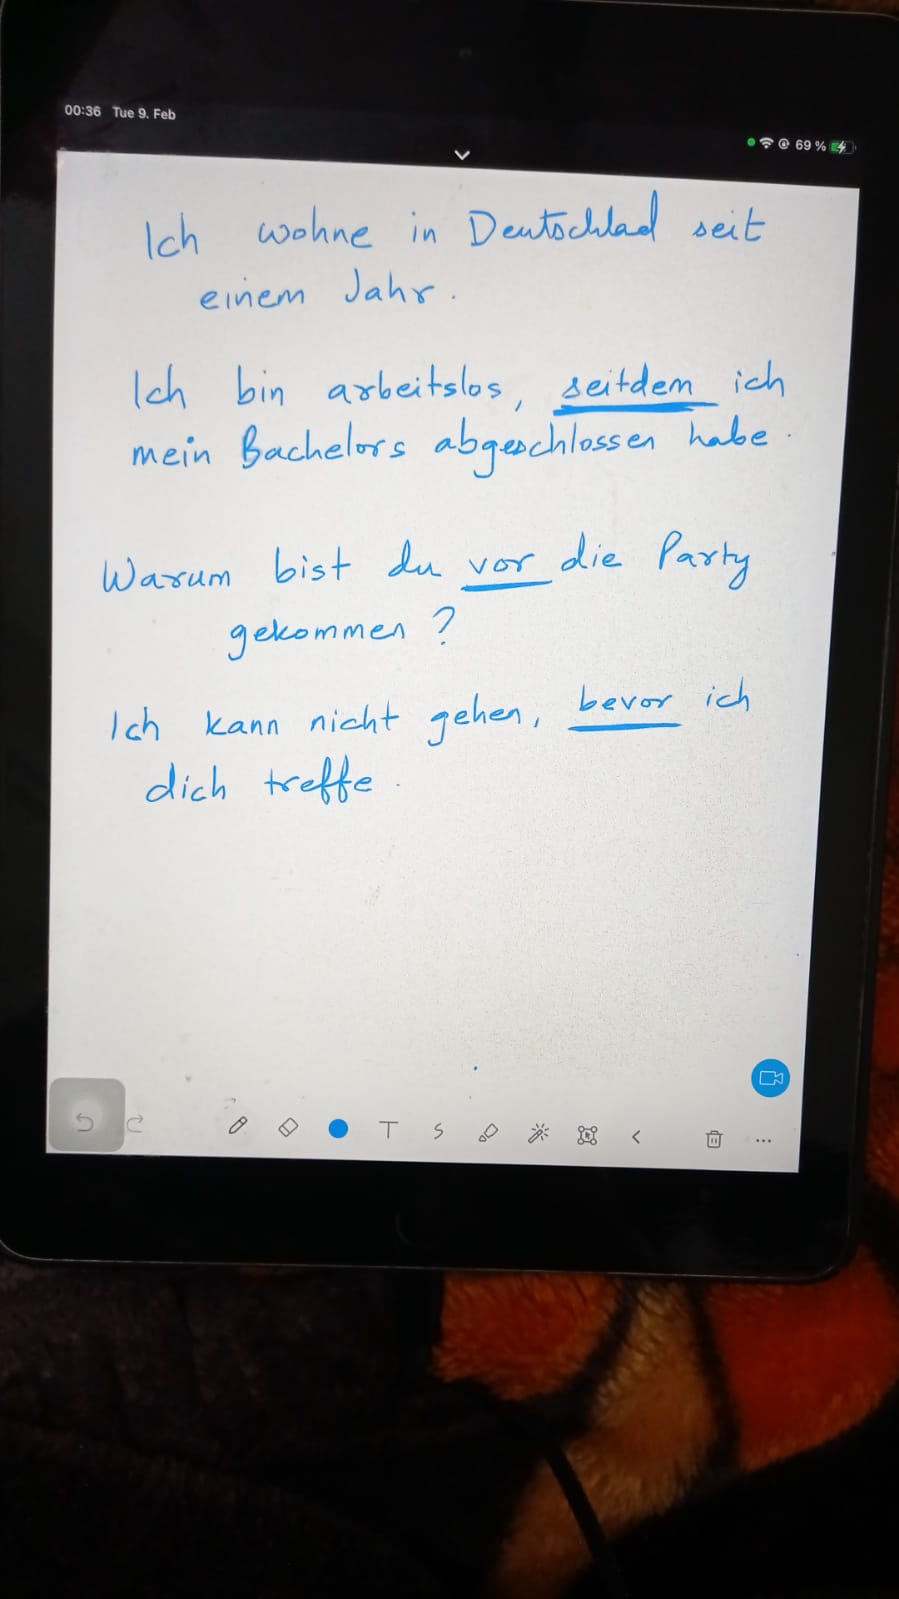 00:36 Tue 9. Feb
69 %
Ich wohne in Deutschlad seit
einem Jahr.
Ich bin arbeitslos, seitdem ich
mein Bachelors abgeschlossen habe.
Warum bist du vor die Party
gekommen ?
Ich kann nicht gehen, bevor ich
dich treffe.
T